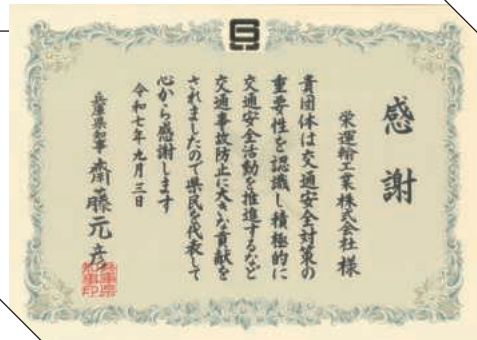 感謝
栄運輸工業株式会社 様
貴団体は交通安全対策の
重要性を認識し積極的に
交通安全活動を推進するなど
交通事故防止に大きな貢献を
されましたので県民を代表して
心から感謝します
令和七年九月三日
兵庫県知事 齋藤元彦
兵庫県
知事印